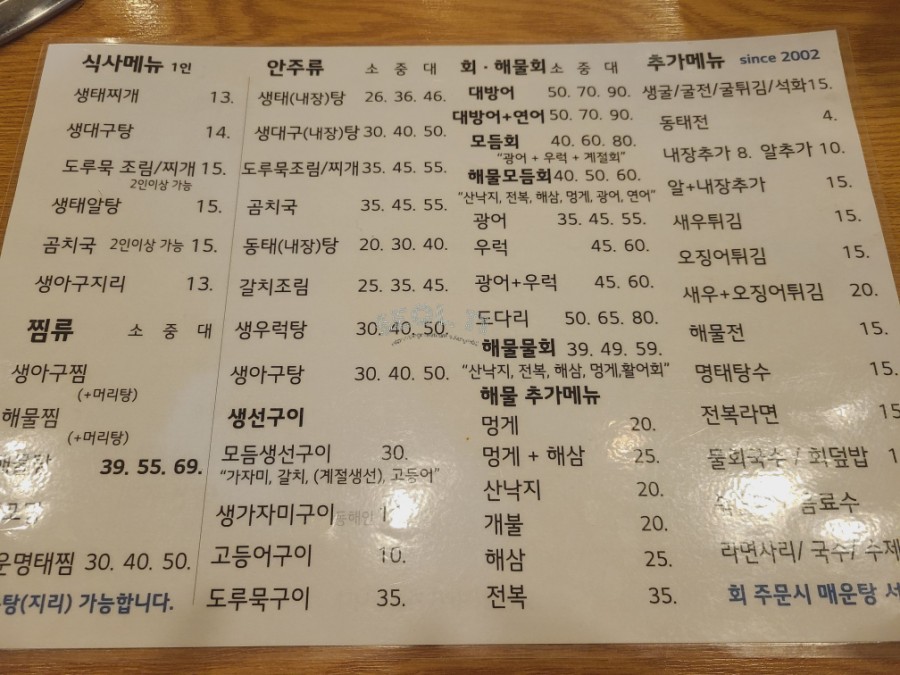 식사메뉴 1인
생태찌개 13.
생대구탕 14.
도루묵 조림/찌개 15.
2인이상 가능
생태알탕 15.
곰치국 2인이상 가능 15.
생아구지리 13.
찜류 소 중 대
생아구찜
(+머리탕)
해물찜
(+머리탕)
39. 55. 69.
운명태찜 30. 40. 50.
탕(지리) 가능합니다.
안주류 소 중 대
생태(내장)탕 26. 36. 46.
생대구(내장)탕 30. 40. 50.
도루묵조림/찌개 35. 45. 55.
곰치국 35. 45. 55.
동태(내장)탕 20. 30. 40.
갈치조림 25. 35. 45.
생우럭탕 30. 40. 50.
생아구탕 30. 40. 50.
생선구이
모듬생선구이 30.
"가자미, 갈치, (계절생선), 고등어"
생가자미구이 동해안
고등어구이 10.
도루묵구이 35.
회 · 해물회 소 중 대
대방어 50. 70. 90.
대방어+연어 50. 70. 90.
모듬회 40. 60. 80.
"광어 + 우럭 + 계절회"
해물모듬회 40. 50. 60.
"산낙지, 전복, 해삼, 멍게, 광어, 연어"
광어 35. 45. 55.
우럭 45. 60.
광어+우럭 45. 60.
도다리 50. 65. 80.
해물물회 39. 49. 59.
"산낙지, 전복, 해삼, 멍게,활어회"
해물 추가메뉴
멍게 20.
멍게 + 해삼 25.
산낙지 20.
개불 20.
해삼 25.
전복 35.
추가메뉴 since 2002
생굴/굴전/굴튀김/석화15.
동태전 4.
내장추가 8. 알추가 10.
알+내장추가 15.
새우튀김 15.
오징어튀김 15.
새우+오징어튀김 20.
해물전 15.
명태탕수 15.
전복라면 15
물회국수 / 회덮밥 1
음료수
라면사리/ 국수/ 수제
회 주문시 매운탕 서